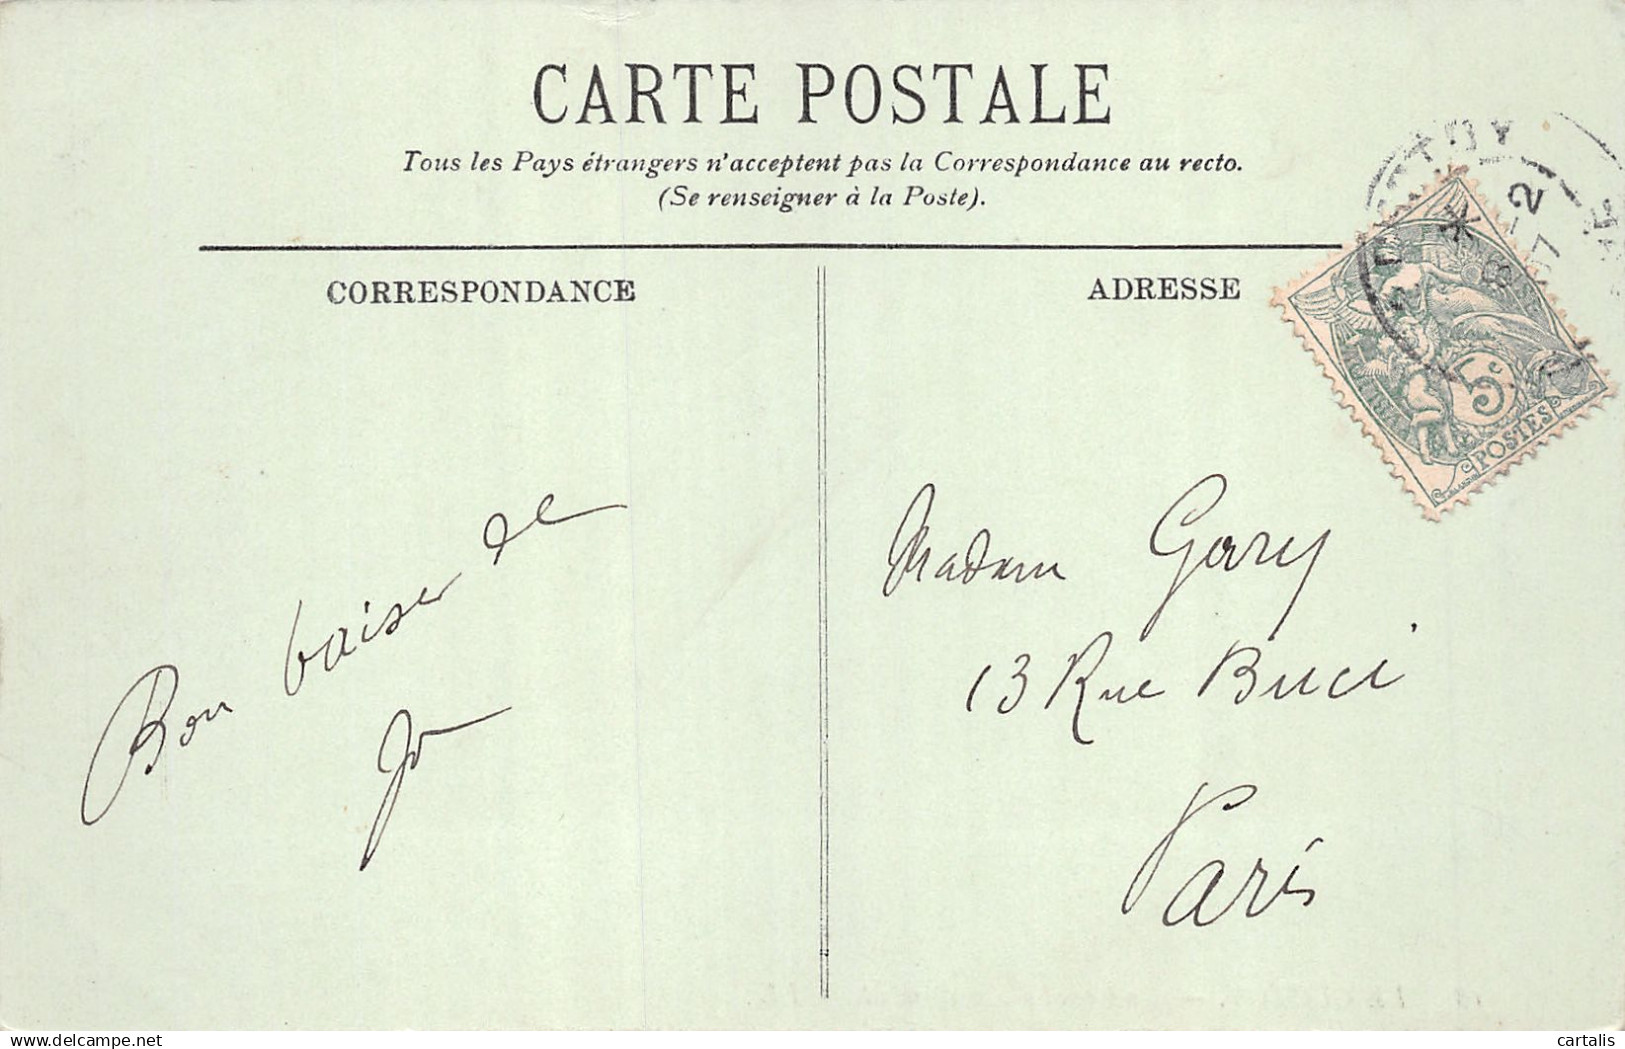 CARTE POSTALE
Tous les Pays étrangers n'acceptent pas la Correspondance au recto.
(Se renseigner à la Poste).
CORRESPONDANCE
ADRESSE
8 -2
07
5c
POSTES
Bon baiser de
Jo
Madam Gary
13 Rue Buci
Paris
cartalis